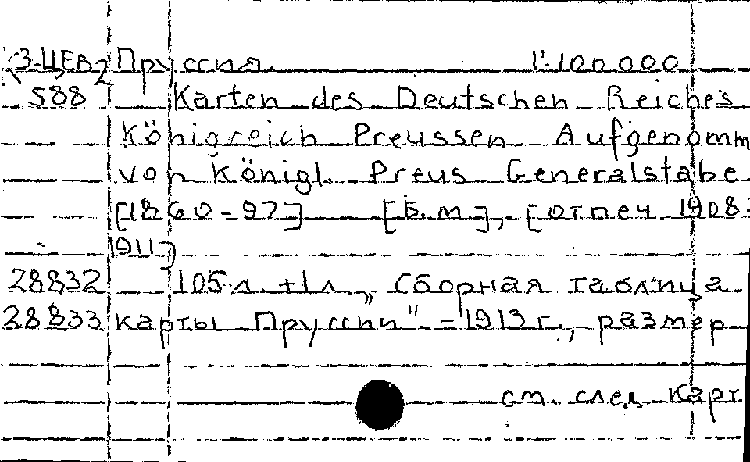 З-ЦЕВ2 Пруссия. 1:100 000
588 Karten des Deutschen Reiches
Königreich Preussen Aufgenomm
von Königl. Preus Generalstabe
[1860-97] [Б.м], [отпеч. 1908-
1911]
28832 105 л. +1 л. „Сборная таблица
28833 карты Пруссии" - 1913 г., размер
см. след карт